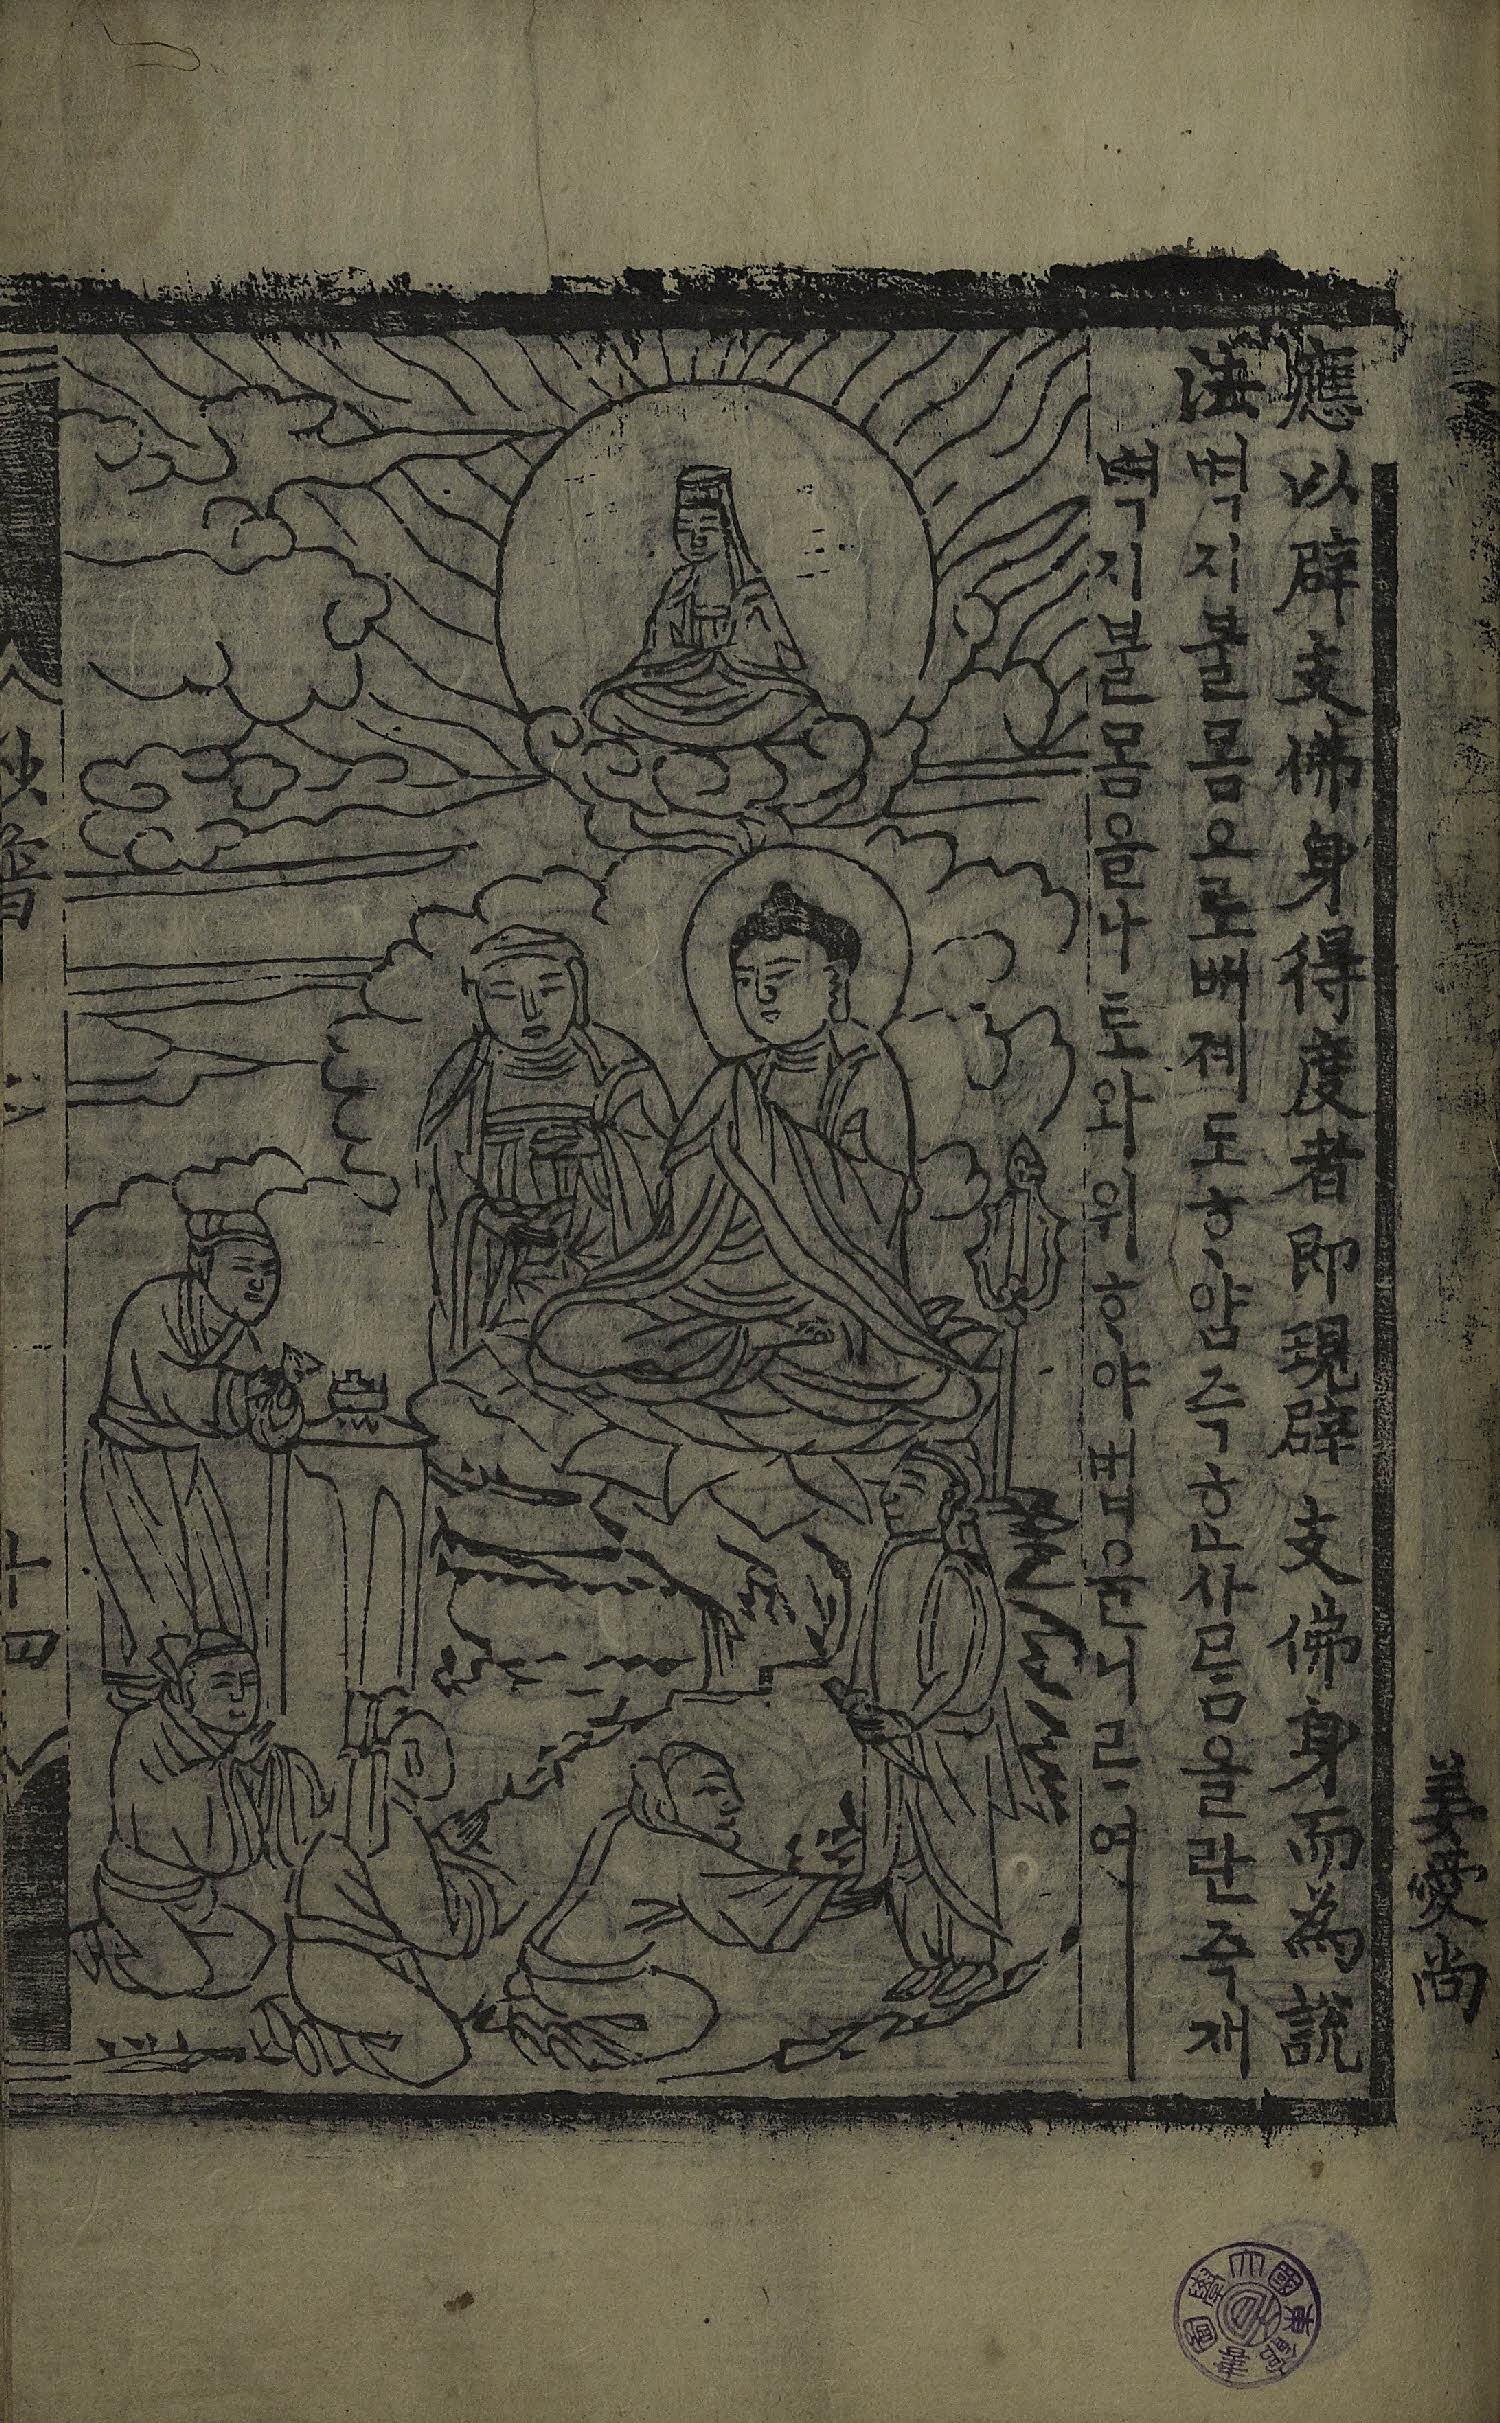 應以辟支佛身得度者即現辟支佛身而為說
法 벽지불몸으로뻐졔도ᄒᆞ암즉ᄒᆞᆫ사ᄅᆞᆷ으란즉재
벽지불몸을나토와위ᄒᆞ야법을니ᄅᆞ며
姜愛尚
妙
音
十四